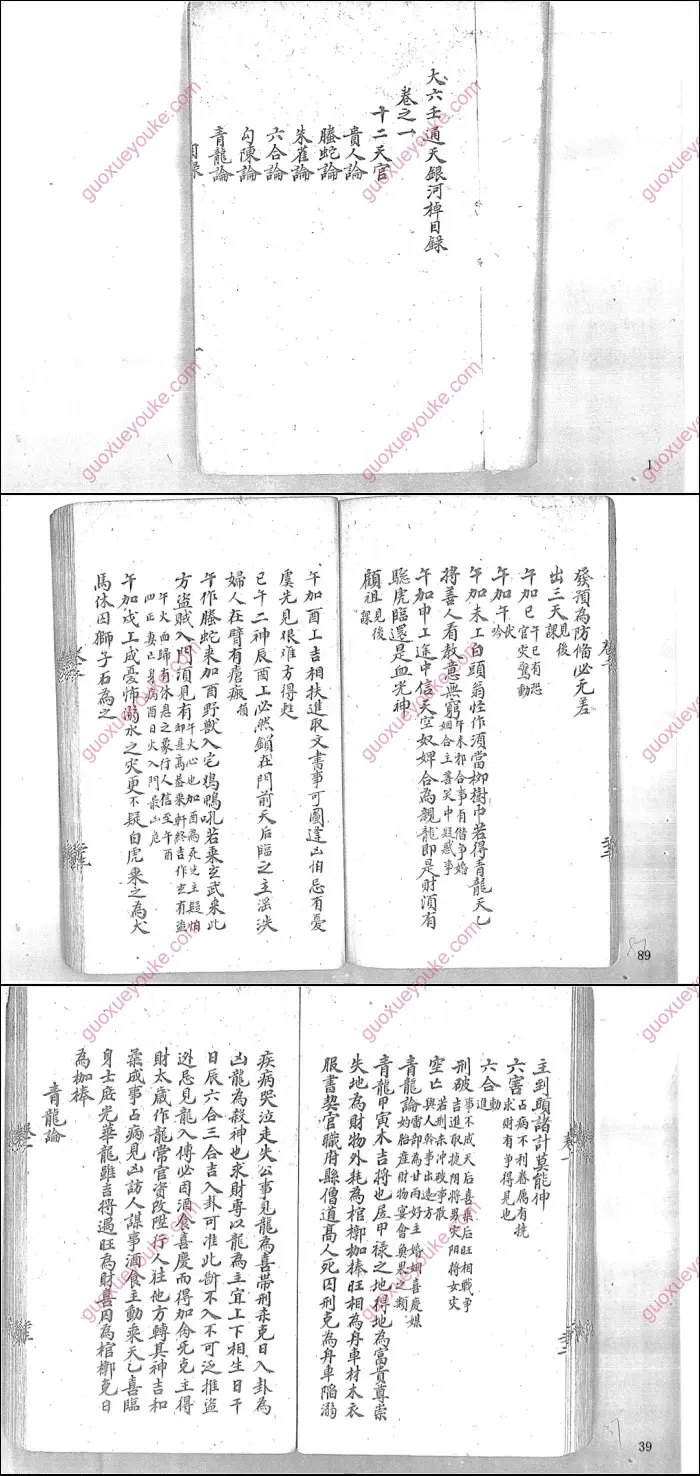 大六壬通天銀河棹目錄
卷之一
十二天官
貴人論
螣蛇論
朱雀論
六合論
勾陳論
青龍論
目錄
1
發預為防備必无差
出三天見後課
午加巳午巳有恐官灾驚動
午加午伏吟
午加未工白頭翁怪作湏當柳樹中若得青龍天乙
將善人看教意無窮午未相合事有偕爭婚姻合主喜笑中疑惑事
午加申工途中信天空奴婢合為親龍即是財湏有
驗虎臨還是血光神
顧祖見後課
午加酉工吉相扶進取文書事可圖逢凶怕忌有憂
虞先見很难方得赴
巳午二神辰酉工必然鎖在門前天后臨之主滛泆
婦人在臂有瘡瘢
午作螣蛇来加酉野獸入宅鳩鴨吼若乘玄武来此
方盜賊入門湏見有
午加戌工成憂怖溺水之灾更不疑白虎乘之為犬
馬依因獅子石為之
89
主到頭諸計莫能伸
六害占病不利眷属有撓求財有爭得見也
六合動進
刑破事不成天后喜柔后旺相戰爭吉進取捷阴将男灾阴将女灾
空亡若刑未冲改事散與人幹事出遠方
青龍論雷部為甘雨好主婚姻喜慶媒妁胎産財物宴會奠果之類
青龍甲寅木吉将也居甲禄之地得地為富貴尊崇
失地為財物外耗為棺槨枷棒旺相為舟車材木衣
服書契官職府縣僧道高人死囚刑克為舟車陷溺
疾病哭泣走失公事見龍為喜帶刑来克日入卦為
凶龍為殺神也求財專以龍為主宜上下相生日干
日辰六合三合吉入卦可准此斷不入不可泛推盜
逃忌見龍入傳必因酒食喜慶而得加酓死克主得
財太歲作龍常官資改陞行人往他方轉其神吉和
榮成事占病見凶訪人謀事酒食主動乘天乙喜臨
身士庭光華龍雖吉得遇旺為財喜因為棺槨克日
為枷棒
青龍論
39